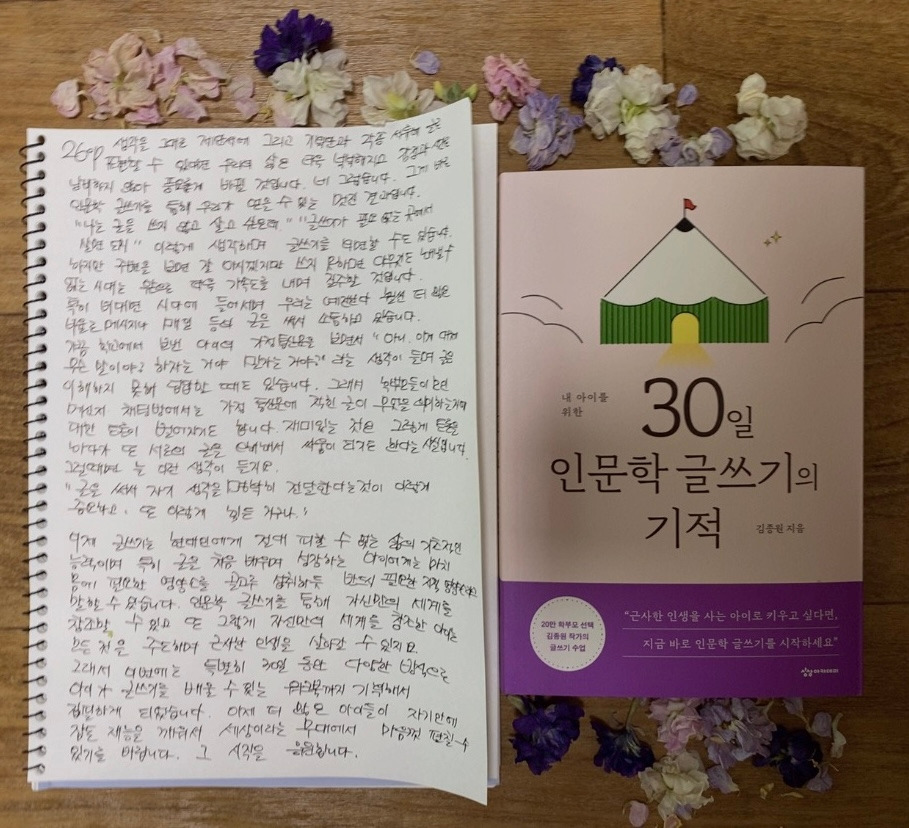 26p 생각을 그대로 제안서에 그리고 기획안과 각종 서류에 글로
표현할 수 있다면 우리의 삶은 더욱 넉넉해지고 감정과 시간을
낭비하지 않아 풍요롭게 바뀔 것입니다. 네 그렇습니다. 그게 바로
인문학 글쓰기를 통해 우리가 얻을 수 있는 멋진 결과입니다.
"나는 글을 쓰지 않고 살고 싶은데." "글쓰기가 필요 없는 곳에서
살면 되지" 이렇게 생각하며 글쓰기를 외면할 수도 있습니다.
하지만 주변을 보면 잘 아시겠지만 쓰지 못하면 아무것도 해낼 수
없는 시대는 앞으로 더욱 가속도를 내며 질주할 것입니다.
특히 비대면 시대에 들어서며 우리는 예전보다 훨씬 더 많은
메시지나 메일 등의 글을 써서 소통하고 있습니다.
가끔 학교에서 보낸 아이의 가정통신문을 보면서 "아니, 이게 대체
무슨 말이야? 하자는 거야 말자는 거야?" 라는 생각이 들며 글을
이해하지 못해 답답할 때도 있습니다. 그래서 학부모들이 모인
메신저 채팅방에서는 가정 통신문에 적힌 글이 무엇을 의미하는지에
대한 토론이 벌어지기도 합니다. 재미있는 것은 그렇게 토론을
하다가 또 서로의 글을 오해해서 싸움이 되기도 한다는 사실입니다.
그럴 때면 늘 이런 생각이 들지요.
"글을 써서 자기 생각을 명백히 전달한다는 것이 이렇게
중요하고, 또 이렇게 힘든 거구나."
이제 글쓰기는 현대인에게 절대 피할 수 없는 삶의 기초적인
능력이며 특히 글을 처음 배우며 성장하는 아이에게는 마치
몸에 필요한 영양소를 골고루 섭취하듯 반드시 필요한 지적 영양소라고
말할 수 있습니다. 인문학 글쓰기를 통해 자신만의 세계를
창조할 수 있고 또 그렇게 자신만의 세계를 창조한 아이는
모든 것을 주도하며 근사한 인생을 살아갈 수 있지요.
그래서 이번에는 특별히 30일 동안 다양한 방식으로
아이가 글쓰기를 배울 수 있는 워크북까지 기획해서
집필하게 되었습니다. 이제 더 많은 아이들이 자기 안에
잠든 재능을 깨워서 세상이라는 무대에서 마음껏 펼칠 수
있기를 바랍니다. 그 시작을 응원합니다.
내 아이를
위한
30일
인문학 글쓰기의
기적
김종원 지음
20만 학부모 선택
김종원 작가의
글쓰기 수업
"근사한 인생을 사는 아이로 키우고 싶다면,
지금 바로 인문학 글쓰기를 시작하세요"
상상아카데미